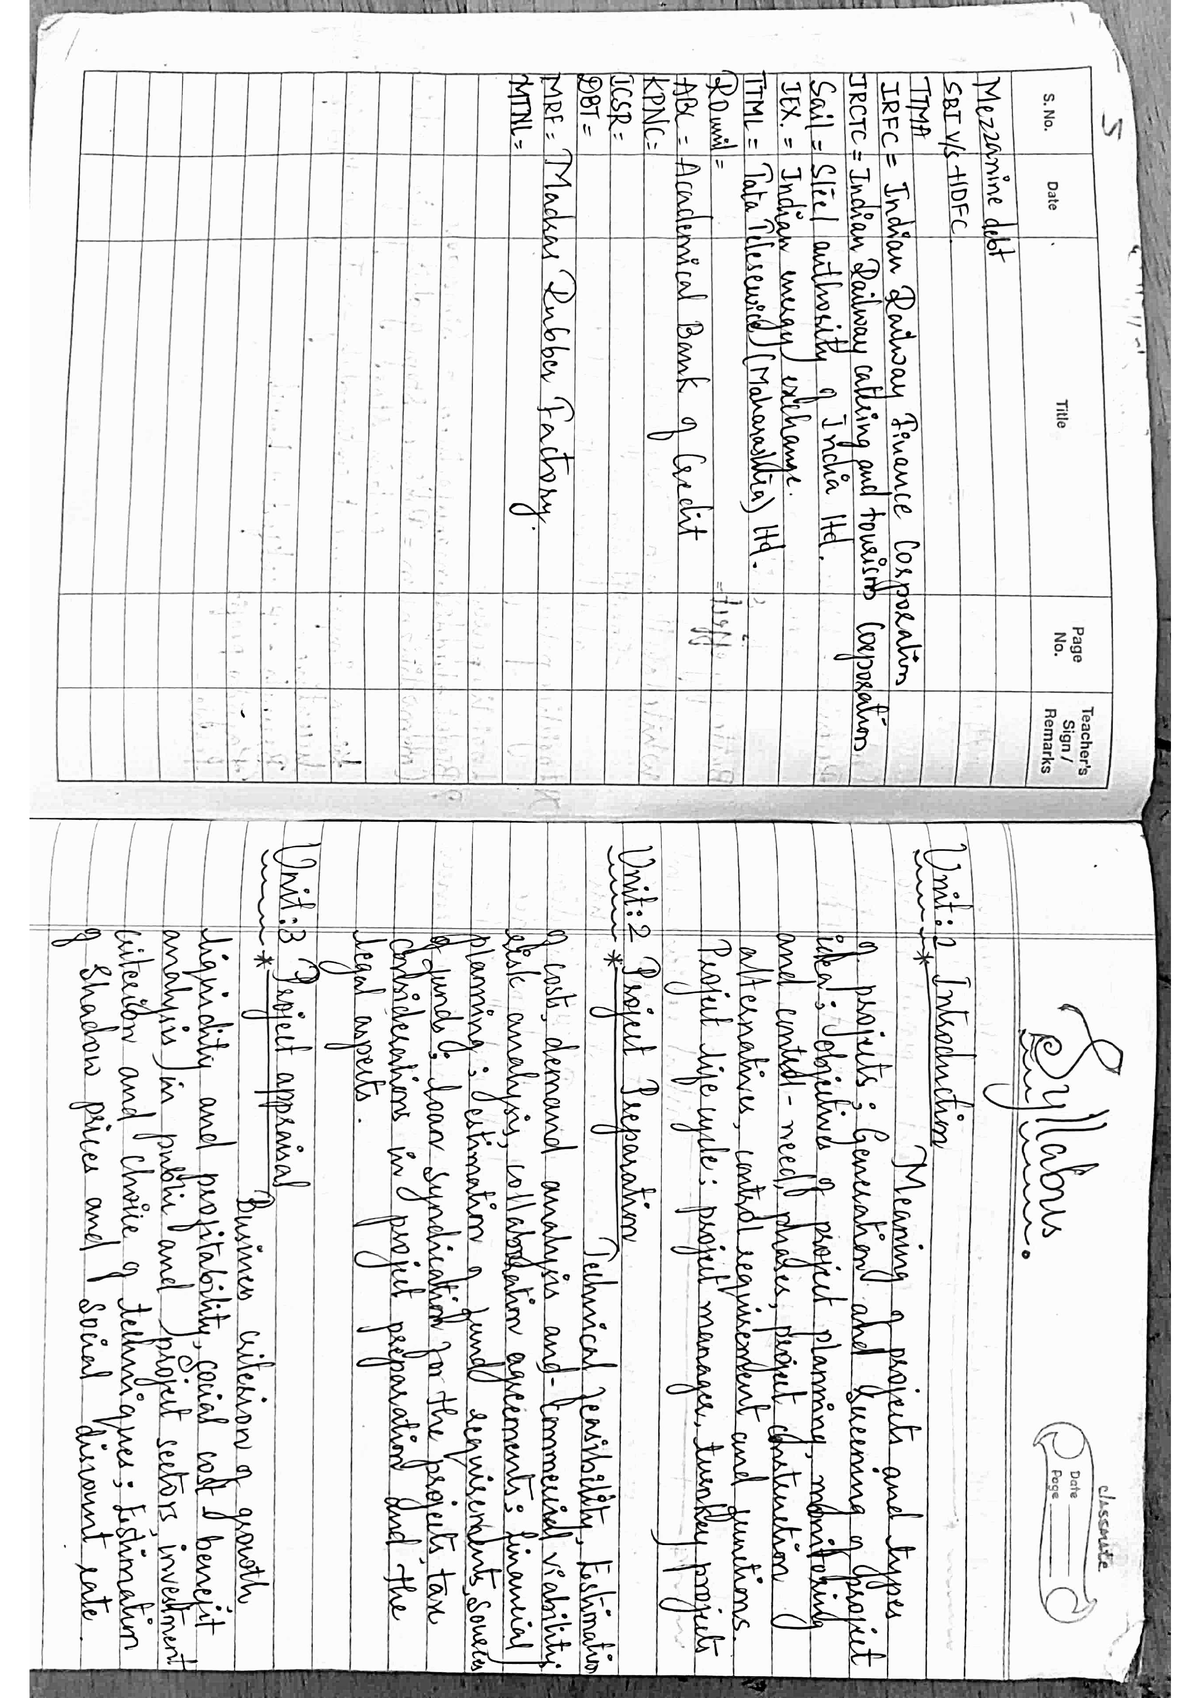 5
S. No.
Date
Title
Page No.
Teacher's Sign / Remarks
Mezzanine debt
SBI V/s HDFC
TTMA
IRFC = Indian Railway Finance Corporation
IRCTC = Indian Railway catering and tourism Corporation
Sail = Steel authority of India ltd.
IEX. = Indian energy exchange.
TTML = Tata Teleservice (Maharashtra) ltd.
ABC = Academical Bank of Credit
KPNC =
ICSR =
DBT =
MRF = Madras Rubber Factory.
MTNL =
classmate
Date
Page
Syllabus.
Unit: 1 Introduction
Meaning of projects and types
of projects; Generation and Screening of project
ideas; objectives of project planning, monitoring
and control - need, phases, project construction
alternatives, control requirement and functions.
Project life cycle; project manager, turnkey projects
Unit: 2 Project Preparation
Technical feasibility, Estimation
of cost, demand analysis and Commercial viability;
risk analysis, collaboration agreements; financial
planning; estimation of fund requirements, Sources
of funds; loan syndication for the projects tax
Considerations in project preparation and the
legal aspects.
Unit: 3 Project appraisal
Business criterion of growth
liquidity and profitability, social cost & benefit
analysis in public and project sectors, investment
criterion and choice of techniques; Estimation
of Shadow prices and Social discount rate.